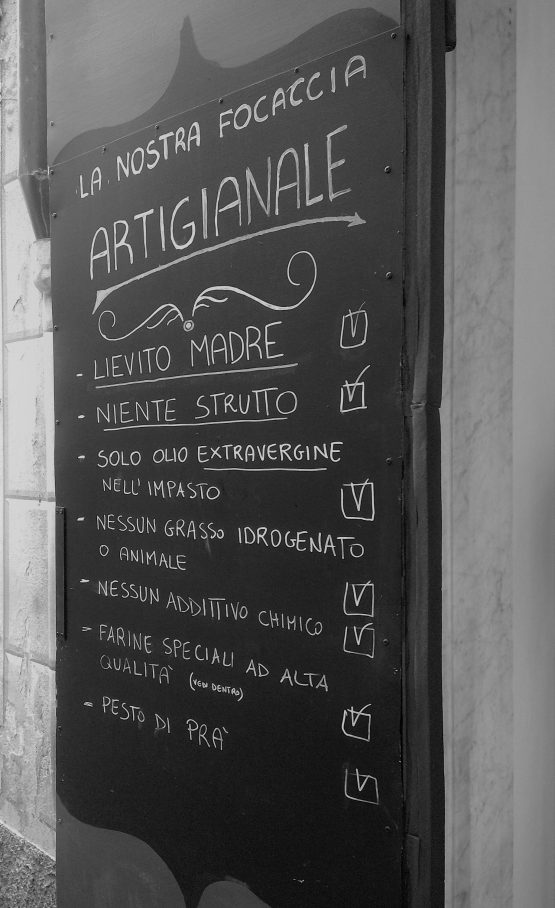 LA NOSTRA FOCACCIA
ARTIGIANALE
- LIEVITO MADRE
- NIENTE STRUTTO
- SOLO OLIO EXTRAVERGINE
NELL' IMPASTO
- NESSUN GRASSO IDROGENATO
O ANIMALE
- NESSUN ADDITTIVO CHIMICO
- FARINE SPECIALI AD ALTA
QUALITA` (VEDI DENTRO)
- PESTO DI PRA`